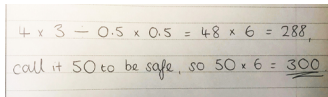 4 x 3 — 0.5 x 0.5 = 48 x 6 = 288,
call it 50 to be safe, so 50 x 6 = 300